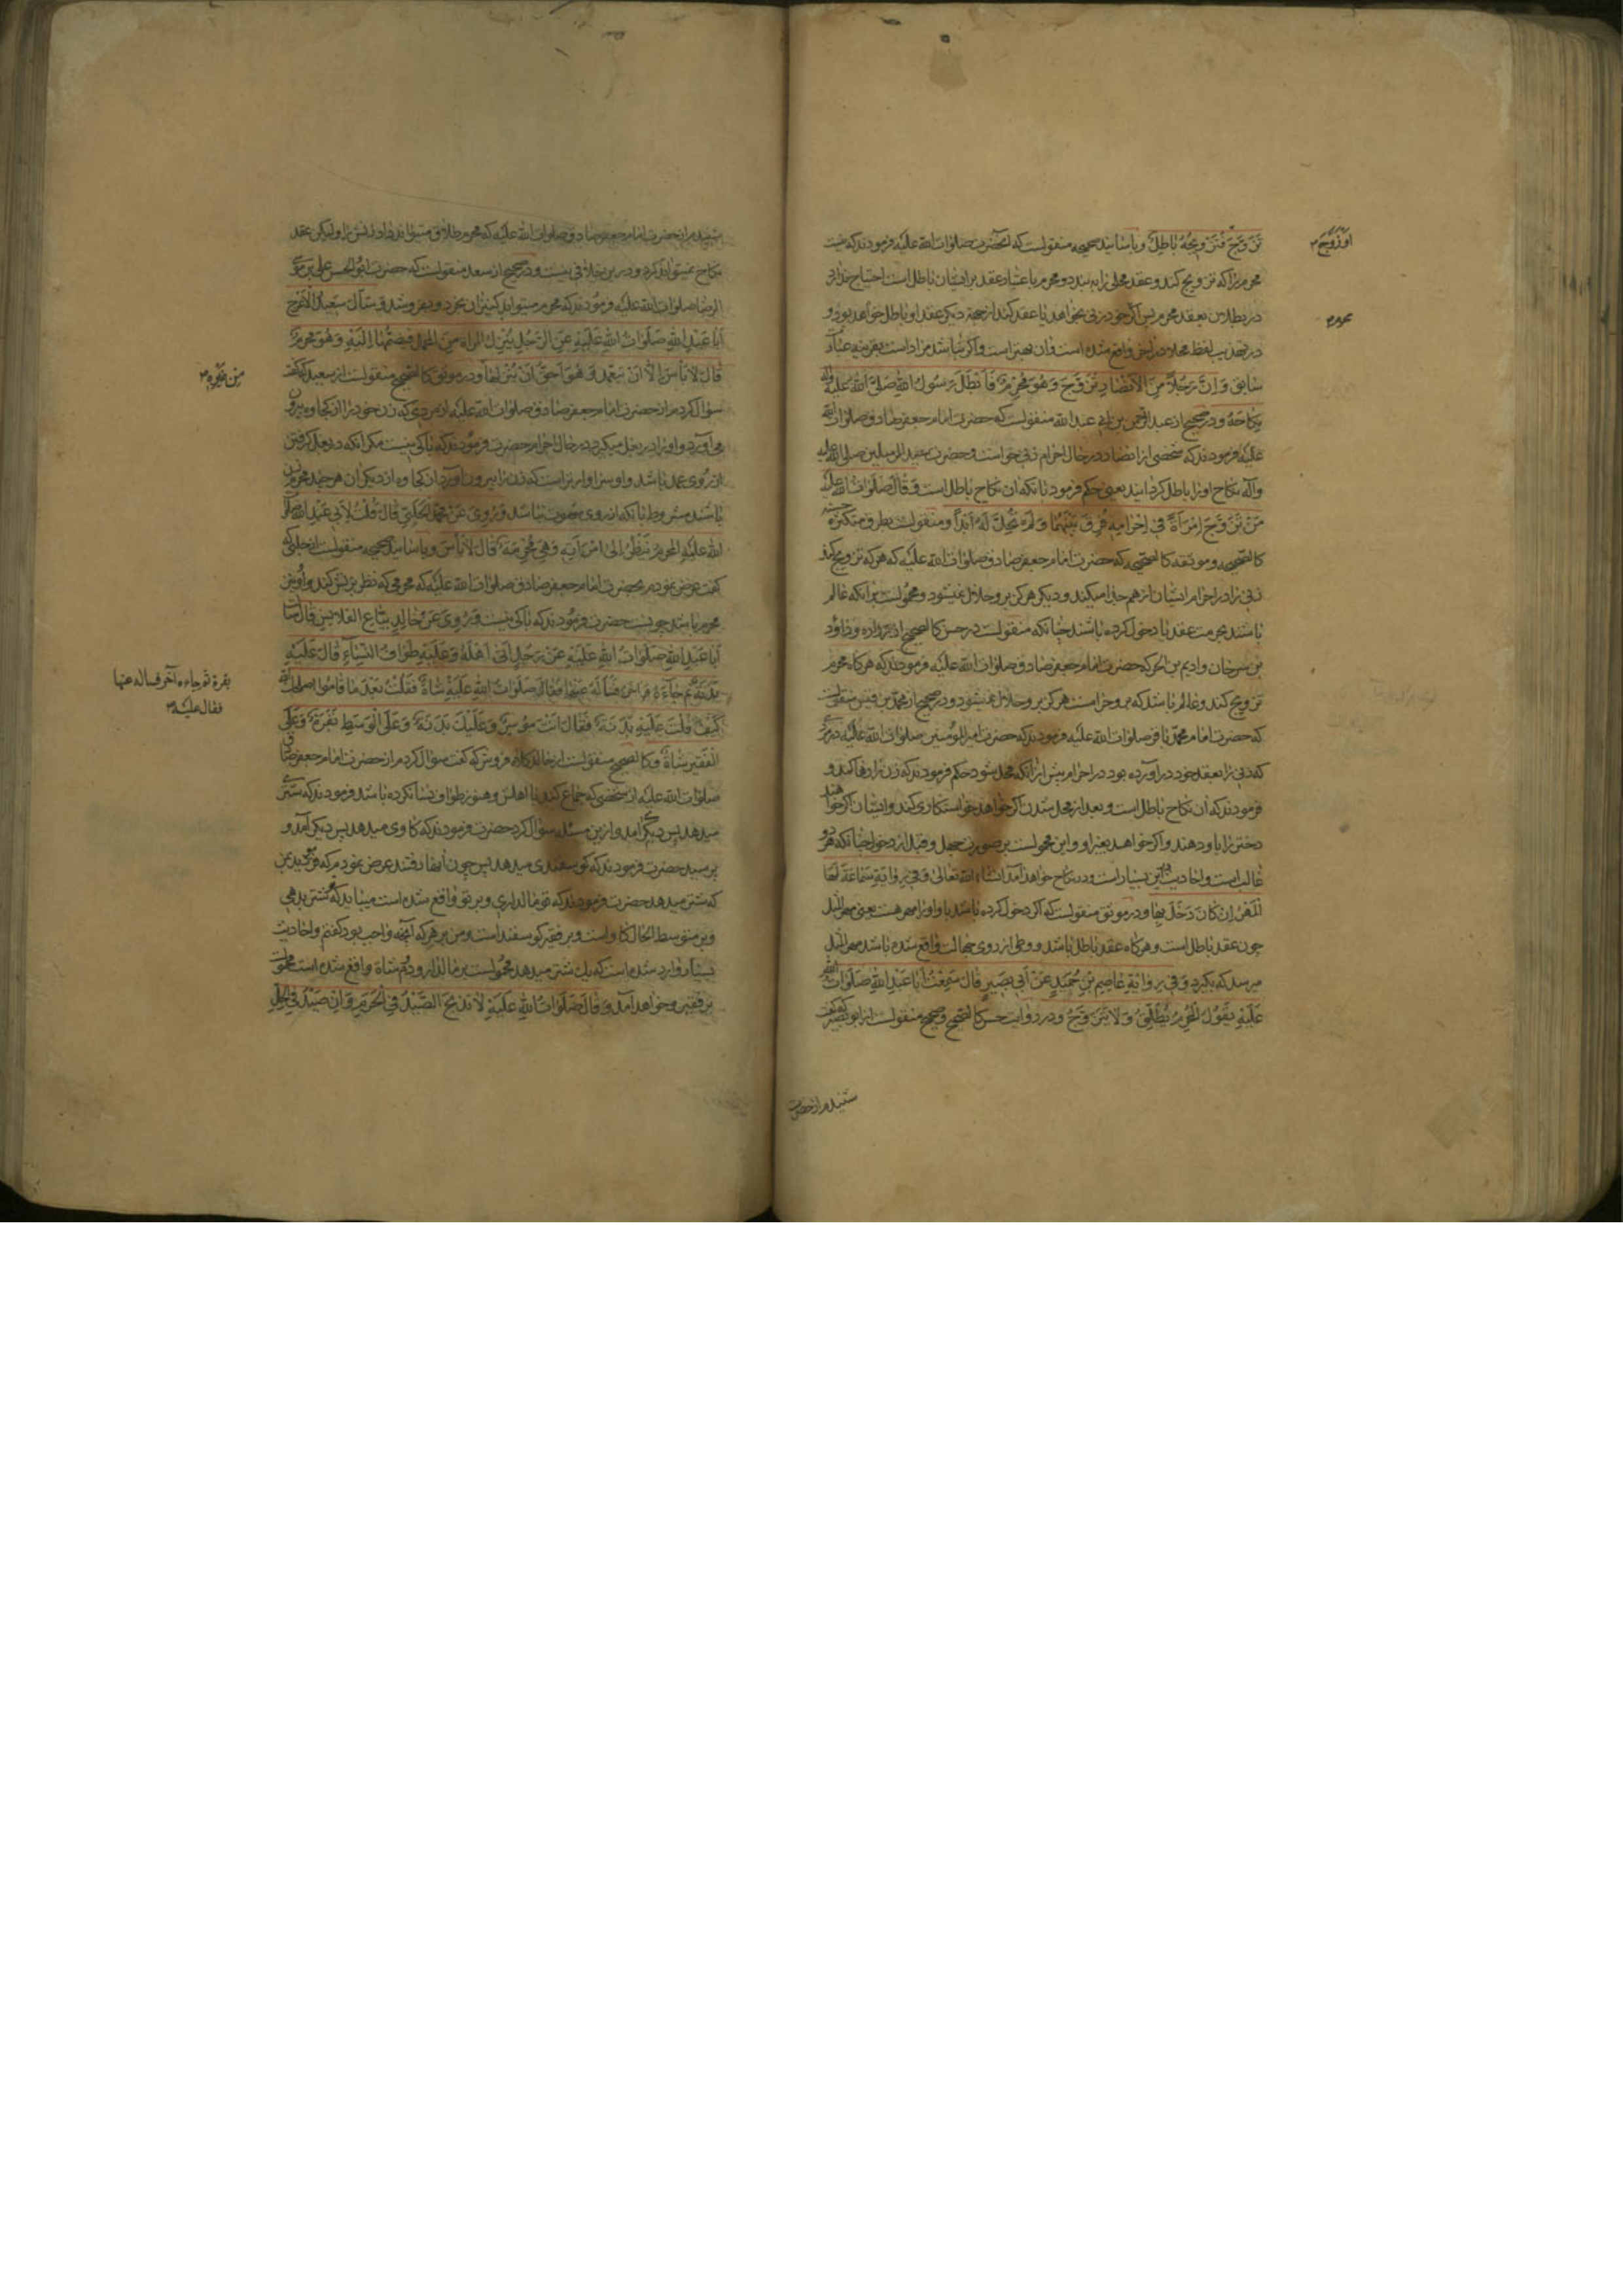 تَزَوَّجَ فَتَزْوِيجُهُ بَاطِلٌ و باسانید صحیحه منقولست که آنحضرت صلوات الله علیه فرمودند که نیست
او زَوَّجَ
محرم را که تزویج کند و عقد محلی را به بندد و محرم با عتبار عقد بر ایشان باطل است احتیاج
در بطلان بعقد محرم پس اگر خود زنی بخواهد یا عقد کند از جهة دیگری عقد او باطل خواهد بود و
محرم
در تهذیب لفظ محلا در آخر واقع شده است و آن بهتر است و اگر نباشد مراد است بقرینه عبارت
سابق وَ اِنَّ رَجُلاً مِنَ الْاَنْصَارِ تَزَوَّجَ وَ هُوَ مُحْرِمٌ فَاَبْطَلَ رَسُولُ اللهِ صَلَّى اللهُ عَلَيْهِ وآله
نِكَاحَهُ و در صحیح از عبد الرحمن بن ابی عبد الله منقولست که حضرت امام جعفر صادق صلوات الله
علیه فرمودند که شخصی از انصار در حال احرام زنی خواست و حضرت سید المرسلین صلی الله علیه
وآله نکاح او را باطل گردانید یعنی حکم فرمود بانکه ان نکاح باطل است وَ قَالَ صَلَوَاتُ اللهِ عَلَيْهِ
مَنْ تَزَوَّجَ اِمْرَأَةً فِي اِحْرَامِهِ فُرِّقَ بَيْنَهُمَا وَ لَمْ تَحِلَّ لَهُ اَبَداً و منقولست بطرق متکثره حسنه
کالصحیحه و موثقه کالصحیحه که حضرت امام جعفر صادق صلوات الله علیه که هر که تزویج کند
زنی را در احرام ایشان از هم جدا میکنند و دیگر هرگز بر و حلال نمیشود و محمولست برانکه عالم
باشند بحرمت عقد یا دخول کرده باشند چنانکه منقولست در حسن کالصحیح از زراره و داود
بن سرحان و ادیم بن الحر که حضرت امام جعفر صادق صلوات الله علیه فرمودند که هرگاه محرم
تزویج کند و عالم باشد که بر و حرامست هرگز بر و حلال نمیشود و در صحیح از محمد بن قیس منقولست
که حضرت امام محمد باقر صلوات الله علیه فرمودند که حضرت امیر المومنین صلوات الله علیه در مردی
که زنی را بعقد خود در آورده بود در احرام پیش از آنکه محل شود حکم فرمودند که زن را رها کند و
فرمودند که ان نکاح باطل است و بعد از محل شدن اگر خواهد خواستکاری کند و ایشان اگر خواهند
دختر را باو دهند و اگر خواهد بغیر او و این محمولست بر صورت جهل و قبل از دخول چنانکه هر دو
غالب است و احادیث درین بسیار است و در نکاح خواهد آمد انشاء الله تعالى وَ فِي رِوَايَةِ سَمَاعَةَ لَهَا
الْمَهْرُ اِنْ كَانَ دَخَلَ بِهَا و در موثق منقولست که اگر دخول کرده باشد باو او را مهر هست یعنی مهر المثل
چون عقد باطل است و هرگاه عقد باطل باشد و وطی از روی جهالت واقع شده باشد مهر المثل
میرسد که بگیرد وَ فِي رِوَايَةِ عَاصِمِ بْنِ حُمَيْدٍ عَنْ اَبِي بَصِيرٍ قَالَ سَمِعْتُ اَبَا عَبْدِ اللهِ صَلَوَاتُ الله
عَلَيْهِ يَقُولُ الْمُحْرِمُ يُطَلِّقُ وَ لَا يَتَزَوَّجُ و در روایت حسن کالصحیح و صحیح منقولست از ابو بصیر که گفت
شنیدم از حضرت
شنیدم از حضرت امام جعفر صادق صلوات الله علیه که محرم طلاق میتواند داد زنش را و لیکن عقد
نکاح نمیتواند کرد و درین خلافی نیست و در صحیح از سعد منقولست که حضرت ابو الحسن علی بن موسی
الرضا صلوات الله علیه فرمودند که محرم میتواند کنیزان بخرد و بفروشد وَ سَأَلَ سَعِيدٌ الْاَعْرَجُ
اَبَا عَبْدِ اللهِ صَلَوَاتُ اللهِ عَلَيْهِ عَنِ الرَّجُلِ يُنْزِلُ الْمَرْأَةَ مِنَ الْمَحْمِلِ فَيَضُمُّهَا اِلَيْهِ وَ هُوَ مُحْرِمٌ
قَالَ لَا بَأْسَ اِلَّا اَنْ يَتَعَمَّدَ وَ هُوَ اَحَقُّ اَنْ يُنْزِلَهَا و در موثق کالصحیح منقولست از سعید که گفت
مِن غَيْرِهِ
سؤال کردم از حضرت امام جعفر صادق صلوات الله علیه از مردی که زن خود را از کجاوه بیرون
می آورد و او را در بغل میگیرد در حال احرام حضرت فرمودند که باکی نیست مگر آنکه در بغل گرفتن
از روی عمد باشد و او سزاوارتر است که زن را بیرون آورد از کجاوه از دیگران هر چند محرم
باشند مشروط بانکه از روی شهوت نباشد وَ رُوِيَ عَنْ مُحَمَّدٍ الْحَلَبِيِّ قَالَ قُلْتُ لِاَبِي عَبْدِ اللهِ صلوات
اللهِ عَلَيْهِ الْمُحْرِمُ يَنْظُرُ اِلَى امْرَأَتِهِ وَ هِيَ مُحْرِمَةٌ قَالَ لَا بَأْسَ و باسانید صحیحه منقولست از حلبی که
گفت عرض نمودم بحضرت امام جعفر صادق صلوات الله علیه که محرمی که نظر بزنش کند و او نیز
محرم باشد چونست حضرت فرمودند که باکی نیست وَ رُوِيَ عَنْ خَالِدٍ بَيَّاعِ الْقَلَانِسِ قَالَ سألت
اَبَا عَبْدِ اللهِ صَلَوَاتُ اللهِ عَلَيْهِ عَنْ رَجُلٍ اَتَى اَهْلَهُ وَ عَلَيْهِ طَوَافُ النِّسَاءِ قَالَ عَلَيْهِ
بَدَنَةٌ ثُمَّ جَاءَهُ آخَرُ فَسَأَلَهُ عَنْهَا فَقَالَ صَلَوَاتُ اللهِ عَلَيْهِ شَاةٌ فَقُلْتُ بَعْدَ مَا قَامُوا اصلحک الله
بقرة ثم جاءه آخر فساله عنها
فقال علیه
كَيْفَ قُلْتَ عَلَيْهِ بَدَنَةٌ فَقَالَ اَنْتَ مُوسِرٌ وَ عَلَيْكَ بَدَنَةٌ وَ عَلَى الْوَسَطِ بَقَرَةٌ وَ عَلَى
الْفَقِيرِ شَاةٌ و کالصحیح منقولست از خالد کلاه فروش که گفت سؤال کردم از حضرت امام جعفر صادق
صلوات الله علیه از شخصی که جماع کند با اهلش و هنوز طواف نسا نکرده باشد فرمودند که شتری
میدهد پس دیگری آمد و ازین مسئله سؤال کرد حضرت فرمودند که گاوی میدهد پس دیگری آمد و
پرسید حضرت فرمودند که گوسفندی میدهد پس چون آنها رفتند عرض نمودم که
که شتر میدهد حضرت فرمودند که تو مالداری و بر تو واقع شده است میباید که شتر بدهی
و بر متوسط الحال گاو است و بر فقیر گوسفند است و من بر هر که آنچه واجب بود گفتم و احادیث
بسیار وارد شده است که یک شتر میدهد محمولست بر مالدار و دم شاة واقع شده است محمولست
بر فقیر و خواهد آمد وَ قَالَ صَلَوَاتُ اللهِ عَلَيْهِ لَا تَذْبَحِ الصَّيْدَ فِي الْحَرَمِ وَ اِنْ صِيْدَ فِي الْحِلِّ